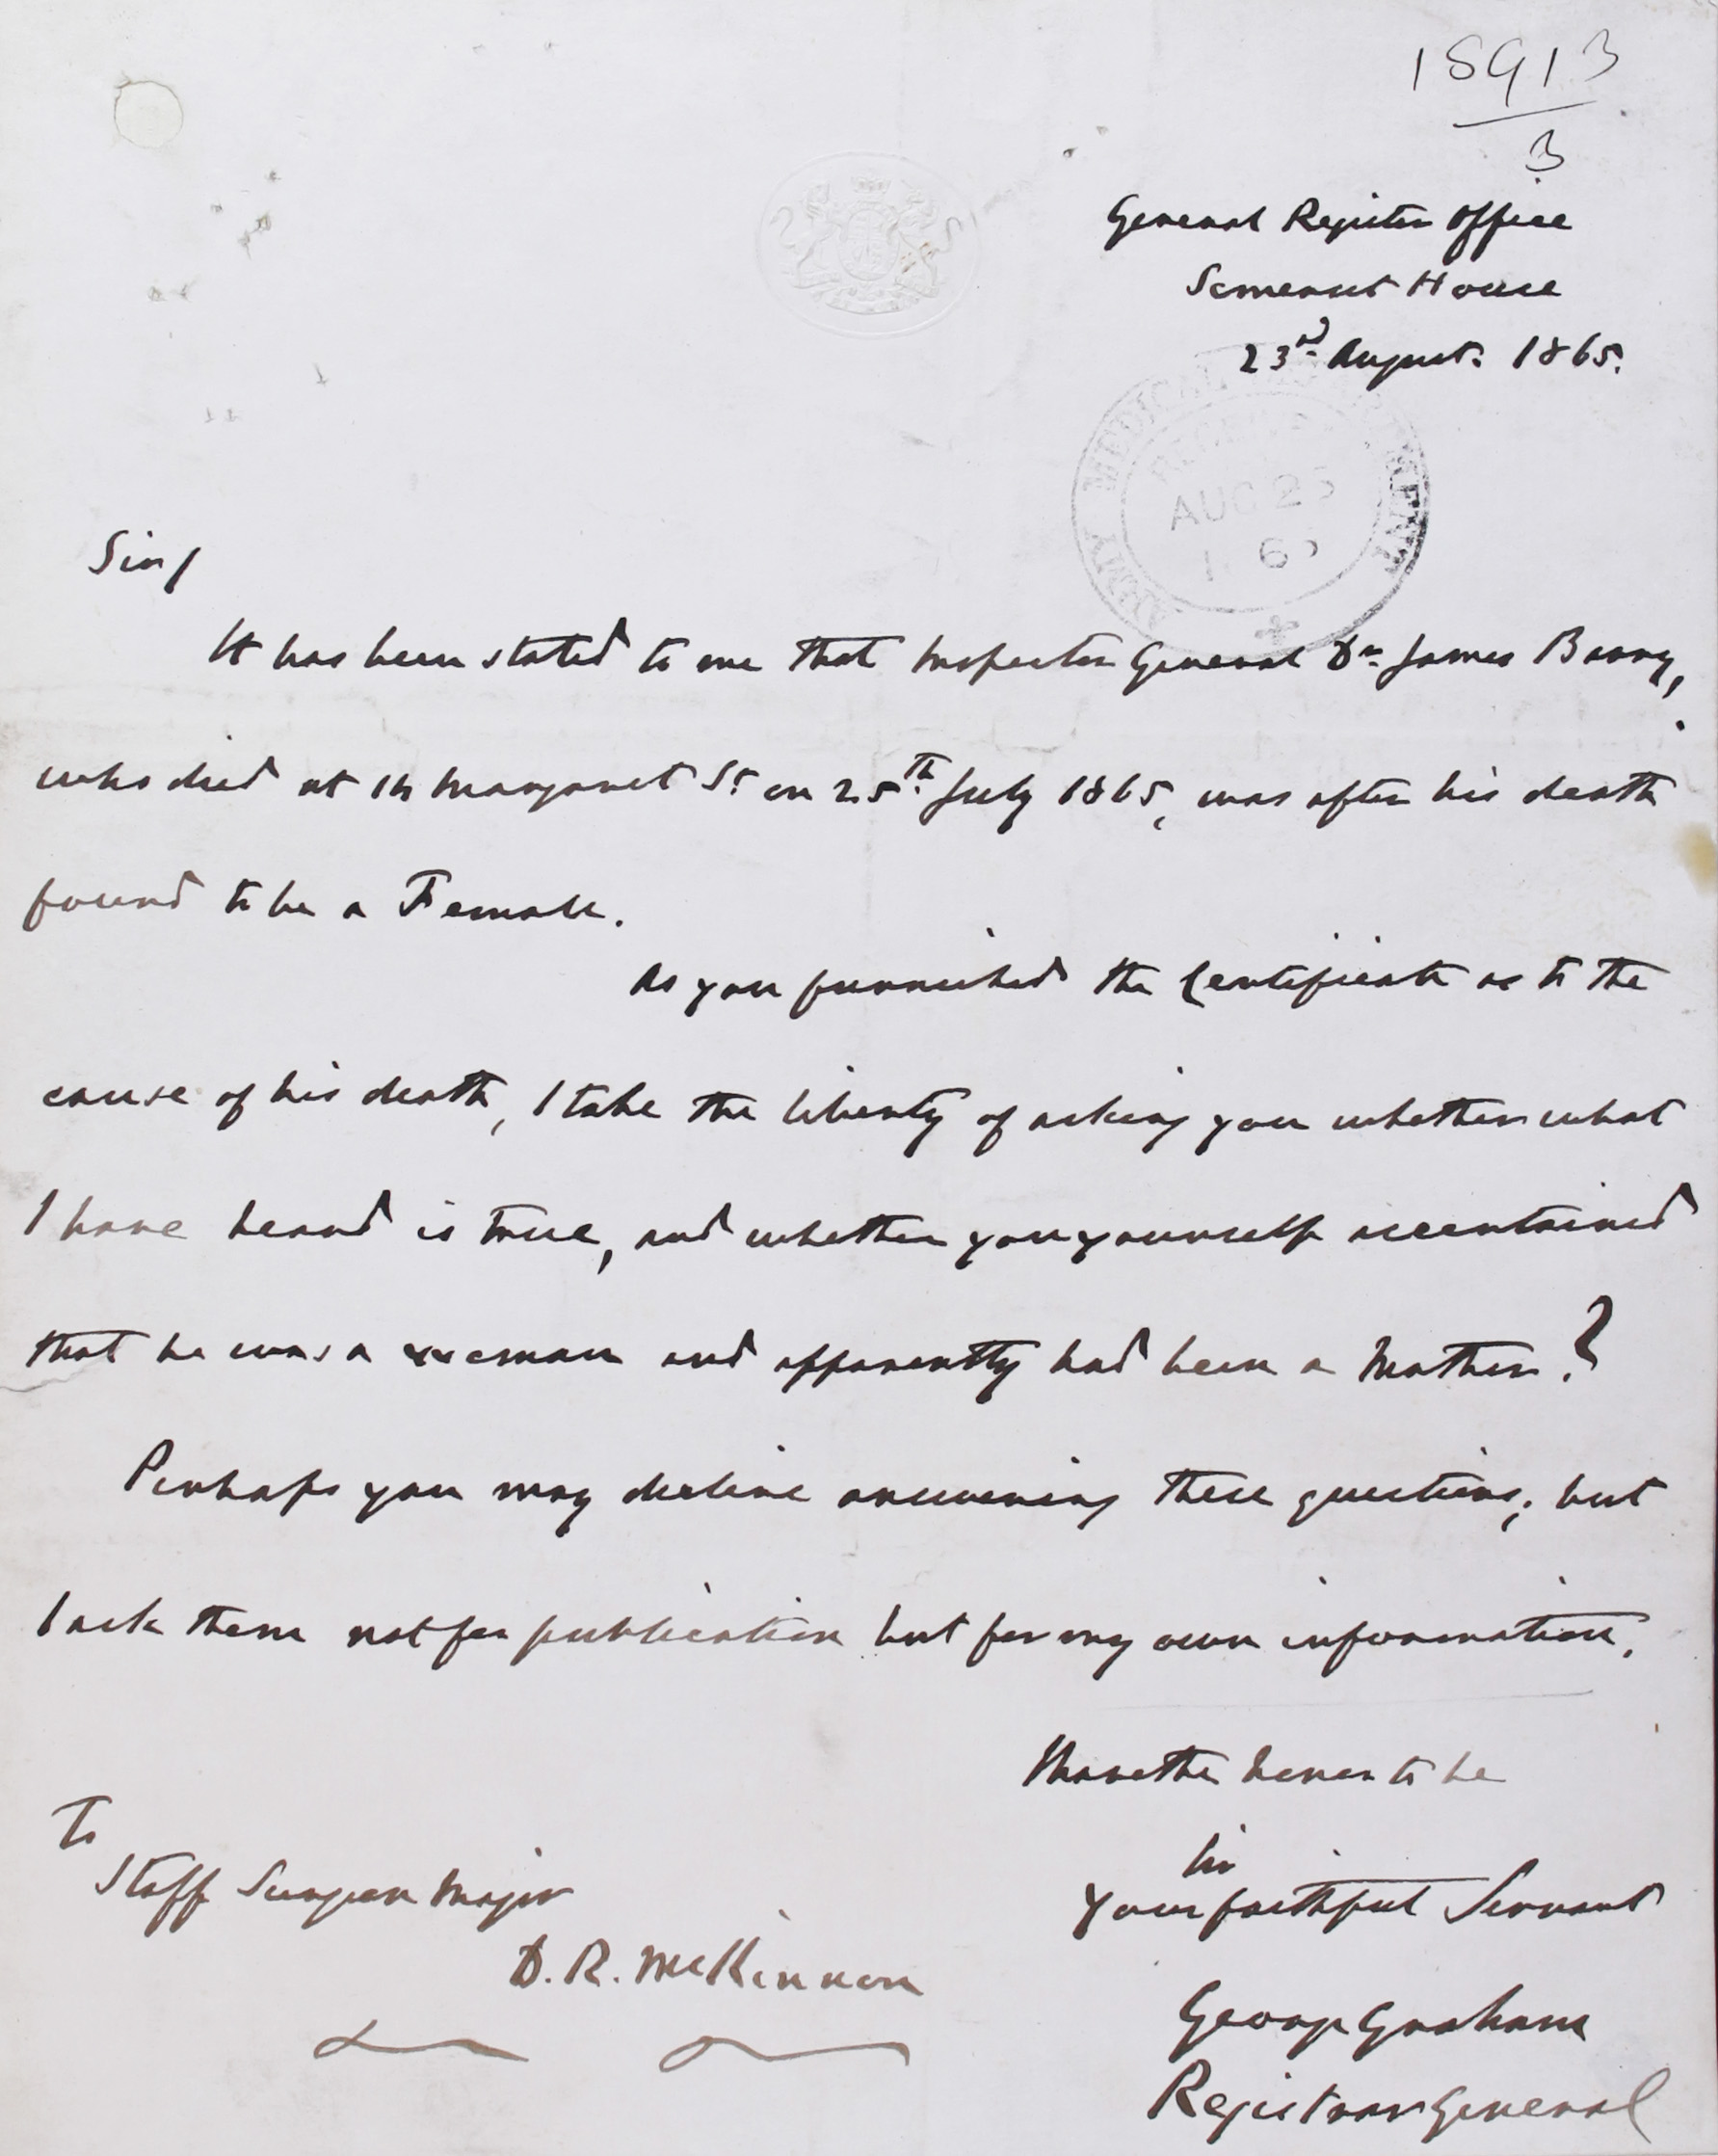 18913
3
General Register Office
Somerset House
23rd August. 1865.
ARMY MEDICAL DEPARTMENT
RECEIVED
AUG 25
1 65
Sir/
It has been stated to me that Inspector General Dr. James Barry,
who died at 14 Margaret St. on 25th July 1865, was after his death
found to be a Female.
As you furnished the Certificate as to the
cause of his death, I take the liberty of asking you whether what
I have heard is true, and whether you yourself ascertained
that he was a woman and apparently had been a Mother?
Perhaps you may decline answering these questions; but
I ask them not for publication but for my own information.
I have the honor to be
Sir
Your faithful Servant
George Graham
Registrar General
To
Staff Surgeon Major
D. R. McKinnon